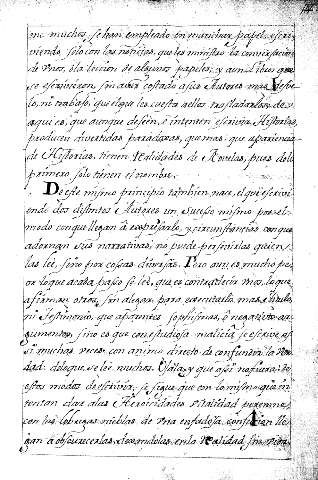 mo muchos, se han empleado en manchar papel, escri-
viendo solo con las noticias, que les ministra la conversacion
de unos, ô la leccion de algunos papeles, y aun Libros que
se escrivieron, sin aver costado a sus Autores mas desve-
lo, ni trabajo, que el que les cuesta a ellos trasladarlos: de
aqui es, que aunque deseen, è intenten escrivir Historias,
producen divertidas paradoxas, que mas que apariencia
de Historias, tienen realidades de Novelas, pues de lo
primero solo tienen el nombre.
De este mismo principio tambien nace, el que escrivi-
endo dos distintos Autores un Sucesso mismo por el
modo con que llegan â expressarlo, y circunstancias con que
adornan sus narrativas, no puede persivirlas quien
las lee, sino por cosas diversas. Pero aun es mucho pe-
or lo que acada passo se lee, que es contradecir unos, lo que
afirman otros, sin alegar para executarlo mas
ni testimonio, que aparentes sophismas, ô negativos ar-
gumentos, sino es que con estudiosa malicia se escrive as-
si muchas veces con animo directo de confundir la Ver-
dad: delo que se lee muchas. y que assi
estos modos de escrivir, se sigue que con lo mismo que in-
tentan dar alas Heroicidades vitalidad perenne,
con las lobregas nieblas de una enfadosa confusion lle-
gan â obscurecerlas en la realidad